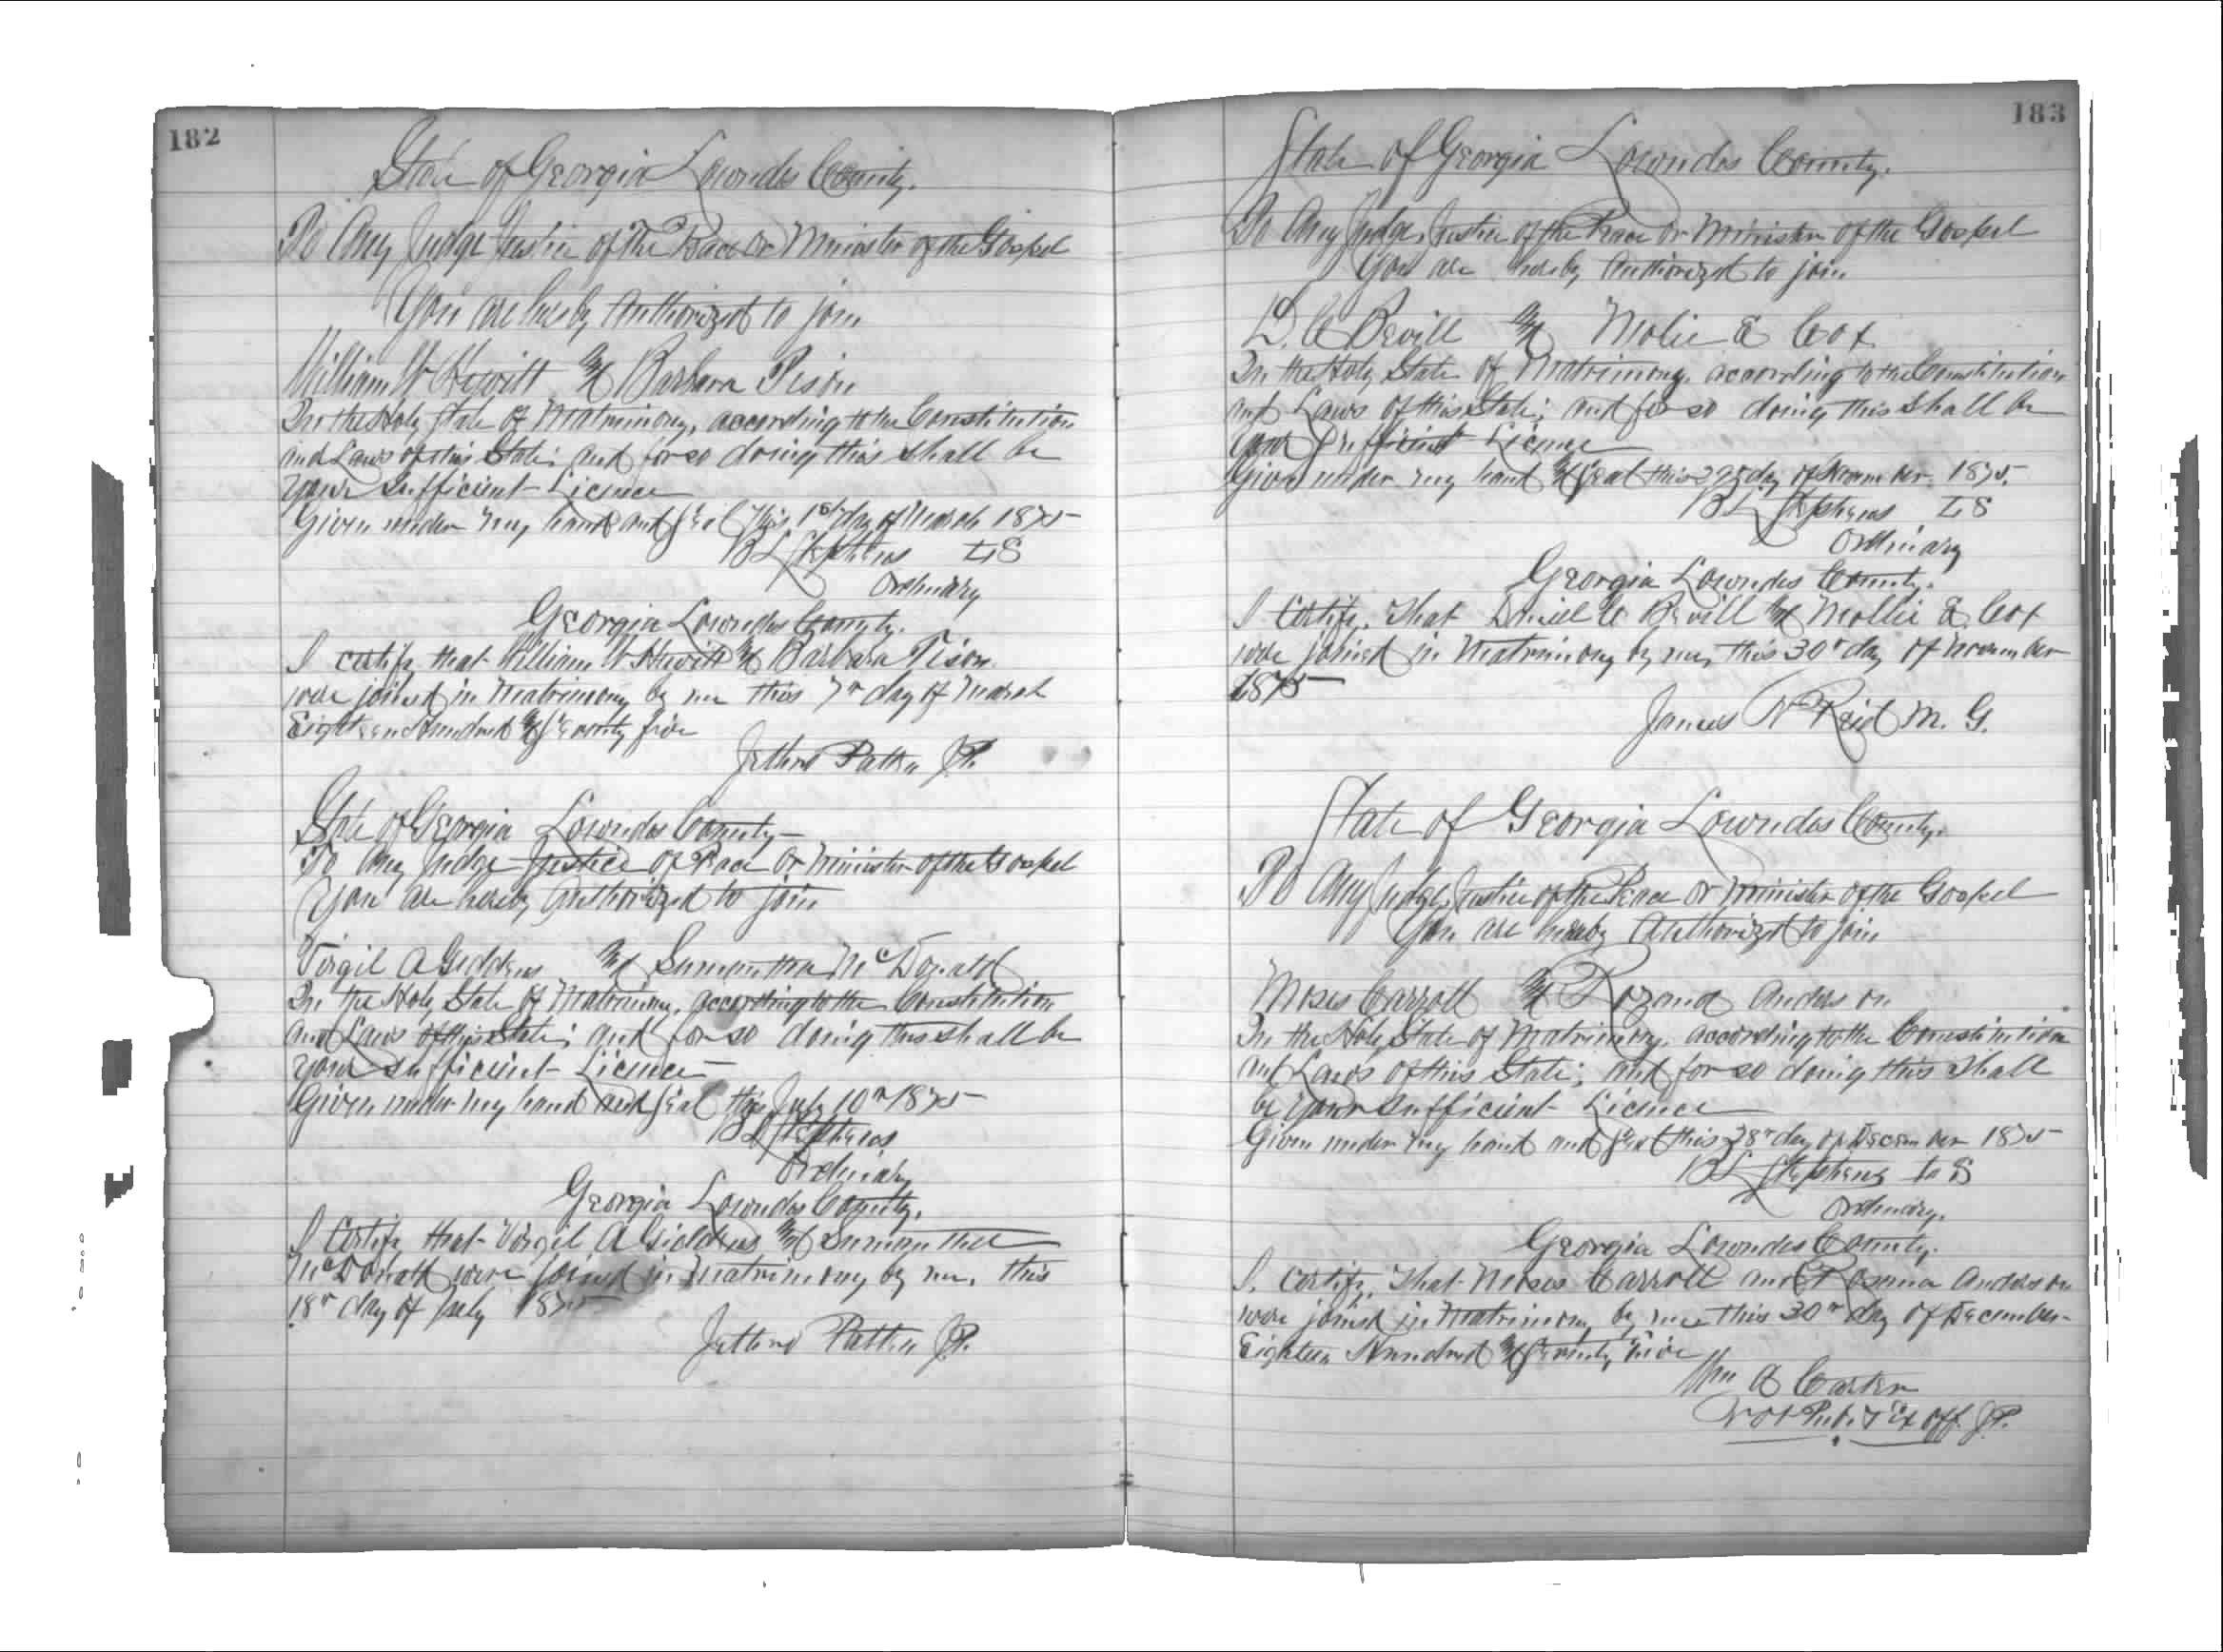 182
State of Georgia Lowndes County.
To Any Judge Justice of the Peace Or Minister of the Gospel
You are hereby Authorized to join
William W Hewitt And Barbara Tison
In the Holy State of Matrimony, according to the Constitution
and Laws of this State; and for so doing this shall be
your sufficient Licence
Given under my hand and Seal this 1st day of March 1875
B L Stephens LS
Ordinary
Georgia Lowndes County.
I certify that William W Hewitt And Barbara Tison
were joined in Matrimony by me this 7th day of March
Eighteen Hundred And Seventy five
Jethro Patten J.P.
State of Georgia Lowndes County
To Any Judge Justice of Peace Or Minister of the Gospel
You are hereby Authorized to join
Virgil A Giddens And Sumantha McDonald
In the Holy State of Matrimony, according to the Constitution
and Laws of this State; and for so doing this shall be
your sufficient Licence
Given under my hand and Seal this July 10th 1875
B L Stephens
Ordinary
Georgia Lowndes County.
I Certify that Virgil A Giddens And Sumantha
McDonald were joined in Matrimony by me, this
18th day of July 1875
Jethro Patten J.P.
183
State of Georgia Lowndes County.
To Any Judge, Justice of the Peace Or Minister of the Gospel
You are hereby Authorized to join
D. C Bevill And Molie E Cox
In the Holy State of Matrimony, according to the Constitution
and Laws of this State; and for so doing this shall be
your sufficient Licence
Given under my hand And Seal this 29th day of November 1875.
B L Stephens LS
Ordinary
Georgia Lowndes County.
I Certify, That Daniel C Bevill And Mollie E, Cox
were joined in Matrimony by me, this 30th day of November
1875
James W Reid M. G.
State of Georgia Lowndes County.
To Any Judge, Justice of the Peace Or Minister of the Gospel
You are hereby Authorized to join
Moses Carroll And Rozana Anderson
In the Holy State of Matrimony, according to the Constitution
and Laws of this State; and for so doing this shall
be your sufficient Licence
Given under my hand and Seal this 28th day of December 1875
B L Stephens LS
Ordinary.
Georgia Lowndes County.
I, Certify, That Moses Carroll and Rosana Anderson
were joined in Matrimony by me this 30th day of December
Eighteen Hundred And Seventy Five
Wm A Carter
Not Pub. & Ex off. J.P.